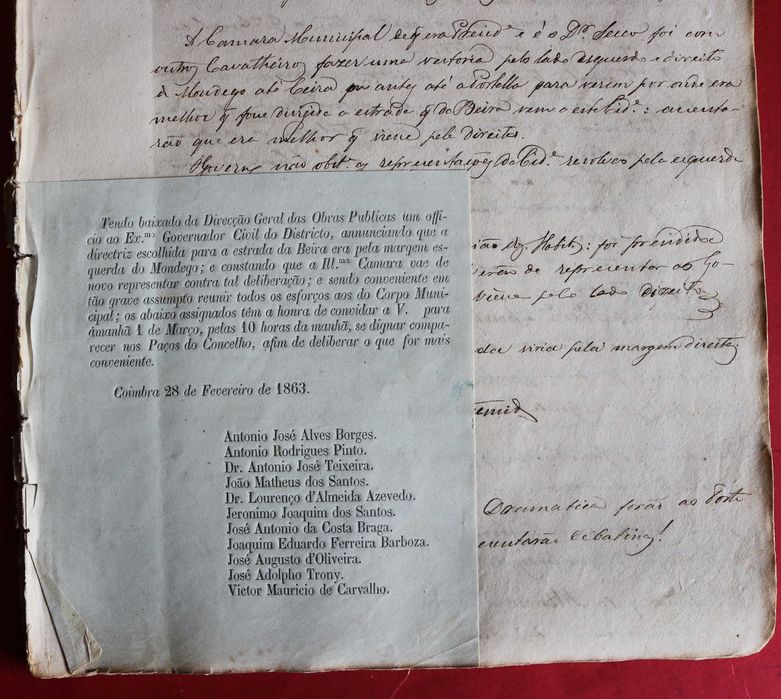 A Camara Municipal de q era Presid.e e é o D.or Secco foi com
outros Cavalheiros fazer uma vestoria pelo lado esquerdo e direito
do Mondego até Ceira ou antes até a Portella para verem por onde era
melhor q fosse dirigida a estrada q da Beira vem a esta Cid.e: assenta-
rão que era melhor q viesse pela direita.
Governo não obst.e as representações da Cid.e resolveo pela esquerda
Tendo baixado da Direcção Geral das Obras Publicas um offi-
cio ao Ex.mo Governador Civil do Districto, annunciando que a
directriz escolhida para a estrada da Beira era pela margem es-
querda do Mondego; e constando que a Ill.ma Camara vae de
novo representar contra tal deliberação; e sendo conveniente em
tão grave assumpto reunir todos os esforços aos do Corpo Muni-
cipal; os abaixo assignados têm a honra de convidar a V. para
ámanhã 1 de Março, pelas 10 horas da manhã, se dignar compa-
recer nos Paços do Concelho, afim de deliberar o que for mais
conveniente.
Coimbra 28 de Fevereiro de 1863.
Antonio José Alves Borges.
Antonio Rodrigues Pinto.
Dr. Antonio José Teixeira.
João Matheus dos Santos.
Dr. Lourenço d'Almeida Azevedo.
Jeronimo Joaquim dos Santos.
José Antonio da Costa Braga.
Joaquim Eduardo Ferreira Barboza.
José Augusto d'Oliveira.
José Adolpho Trony.
Victor Mauricio de Carvalho.
foi presidida
de representar ao Go-
pelo lado direito
viria pela margem direita
Dramatica serão ao